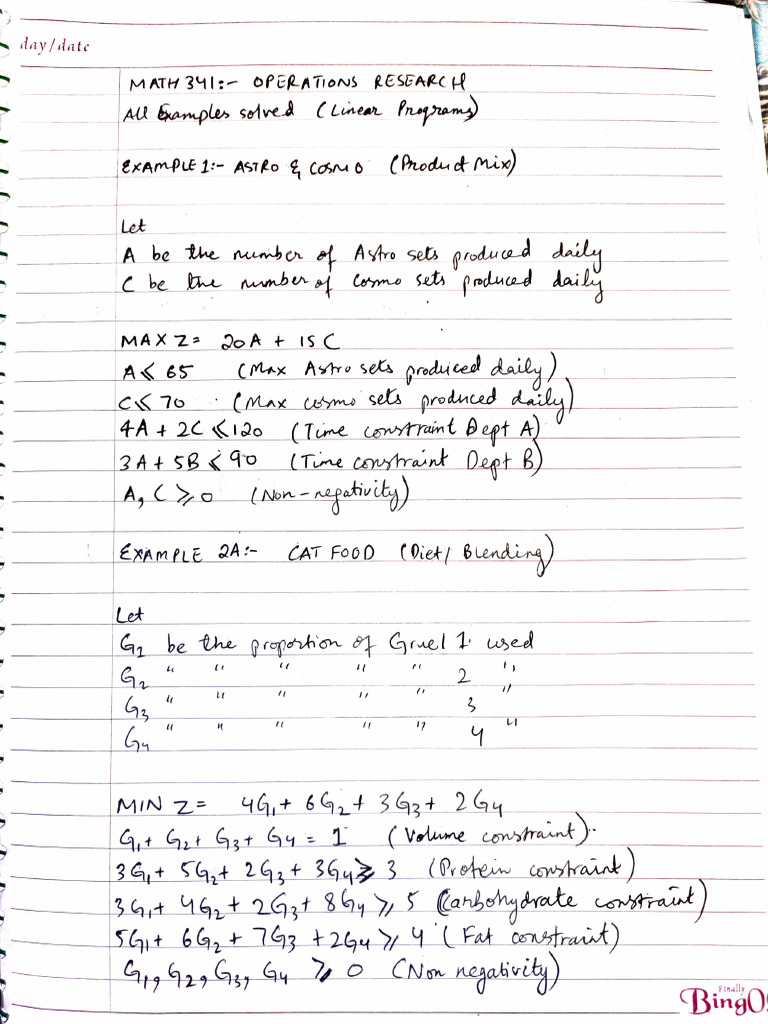 day/date
MATH 341:- OPERATIONS RESEARCH
All Examples solved (Linear Programs)
EXAMPLE 1:- ASTRO & COSMO (Product Mix)
Let
A be the number of Astro sets produced daily
C be the number of Cosmo sets produced daily
MAX Z = 20A + 15C
A ≤ 65 (Max Astro sets produced daily)
C ≤ 70 (Max cosmo sets produced daily)
4A + 2C ≤ 120 (Time constraint Dept A)
3A + 5B ≤ 90 (Time constraint Dept B)
A, C ≥ 0 (Non-negativity)
EXAMPLE 2A:- CAT FOOD (Diet/ Blending)
Let
G1 be the proportion of Gruel 1 used
G2 " " " " " 2 "
G3 " " " " " 3 "
G4 " " " " " 4 "
MIN Z = 4G1 + 6G2 + 3G3 + 2G4
G1 + G2 + G3 + G4 = 1 (Volume constraint)
3G1 + 5G2 + 2G3 + 3G4 ≥ 3 (Protein constraint)
3G1 + 4G2 + 2G3 + 8G4 ≥ 5 (Carbohydrate constraint)
5G1 + 6G2 + 7G3 + 2G4 ≥ 4 (Fat constraint)
G1, G2, G3, G4 ≥ 0 (Non negativity)
Finally
BingO!